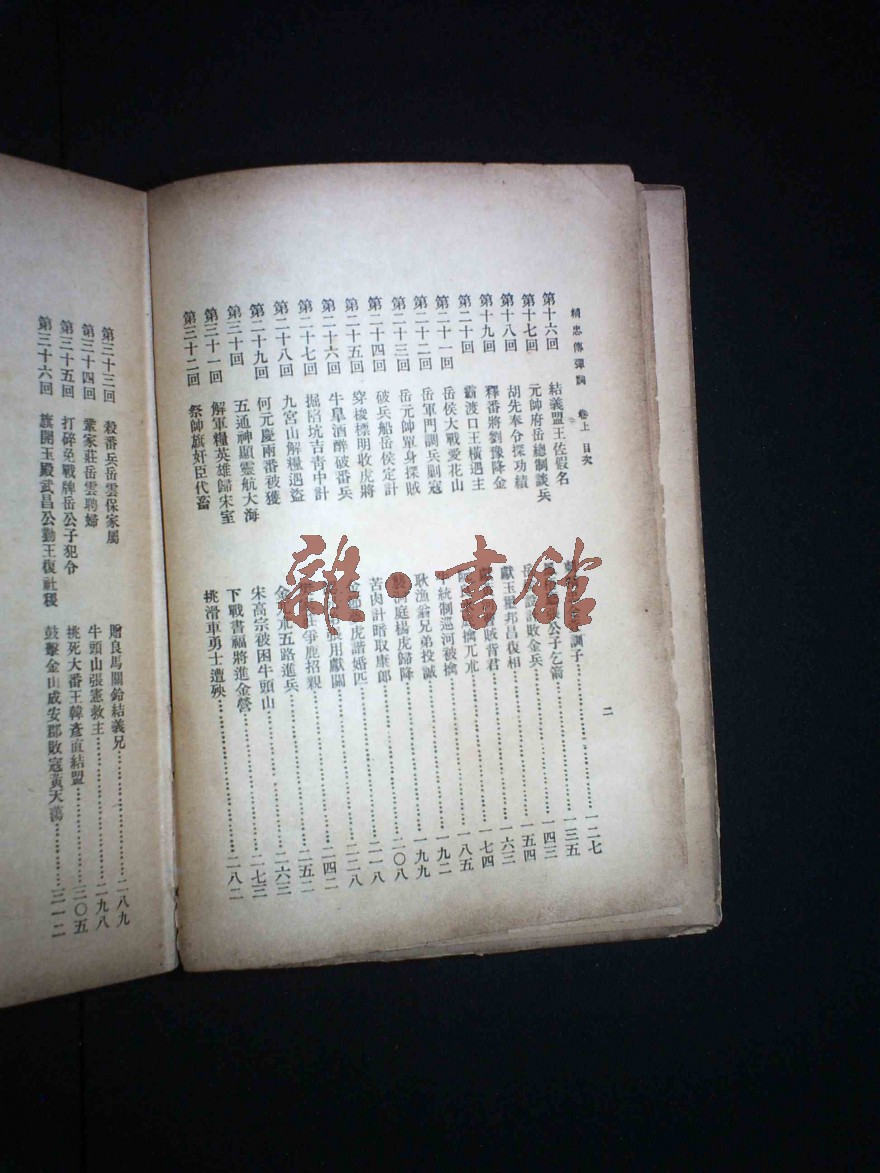 精忠傳彈詞 卷上 目次
二
第十六回 結義盟王佐假名 訓子 一二七
第十七回 元帥府岳總制談兵 公子乞 一三五
第十八回 胡先奉令探功績 岳 敗金兵 一四三
第十九回 釋番將劉豫降金 獻玉璽邦昌復相 一五四
第二十回 霸渡口王橫遇主 獻 賊背君 一六三
第二十一回 岳侯大戰愛花山 擒兀朮 一七四
第二十二回 岳軍門調兵剿寇 牛統制巡河被擒 一八五
第二十三回 岳元帥單身探賊 耿漁翁兄弟投誠 一九二
第二十四回 破兵船岳侯定計 襲洞庭楊虎歸降 一九九
第二十五回 穿梭標明收虎將 苦肉計暗取康郎 二〇八
第二十六回 牛皋酒醉破番兵 金節 虎諧婚匹 二一八
第二十七回 掘陷坑吉青中計 張用獻關 二二八
第二十八回 九宮山解糧遇盜 爭鹿招親 二四二
第二十九回 何元慶兩番被獲 金兀朮五路進兵 二五二
第三十回 五通神顯靈航大海 宋高宗被困牛頭山 二六三
第三十一回 解軍糧英雄歸宋室 下戰書福將進金營 二七三
第三十二回 祭帥旗奸臣代畜 挑滑車勇士遭殃 二八二
第三十三回 殺番兵岳雲保家屬 贈良馬關鈴結義兄 二八九
第三十四回 鞏家莊岳雲聘婦 牛頭山張憲救主 二九八
第三十五回 打碎免戰牌岳公子犯令 挑死大番王韓彥直結盟 三〇五
第三十六回 旗開玉殿武昌公勤王復社稷 鼓擊金山咸安郡敗寇黃天蕩 三一二
雜·書館